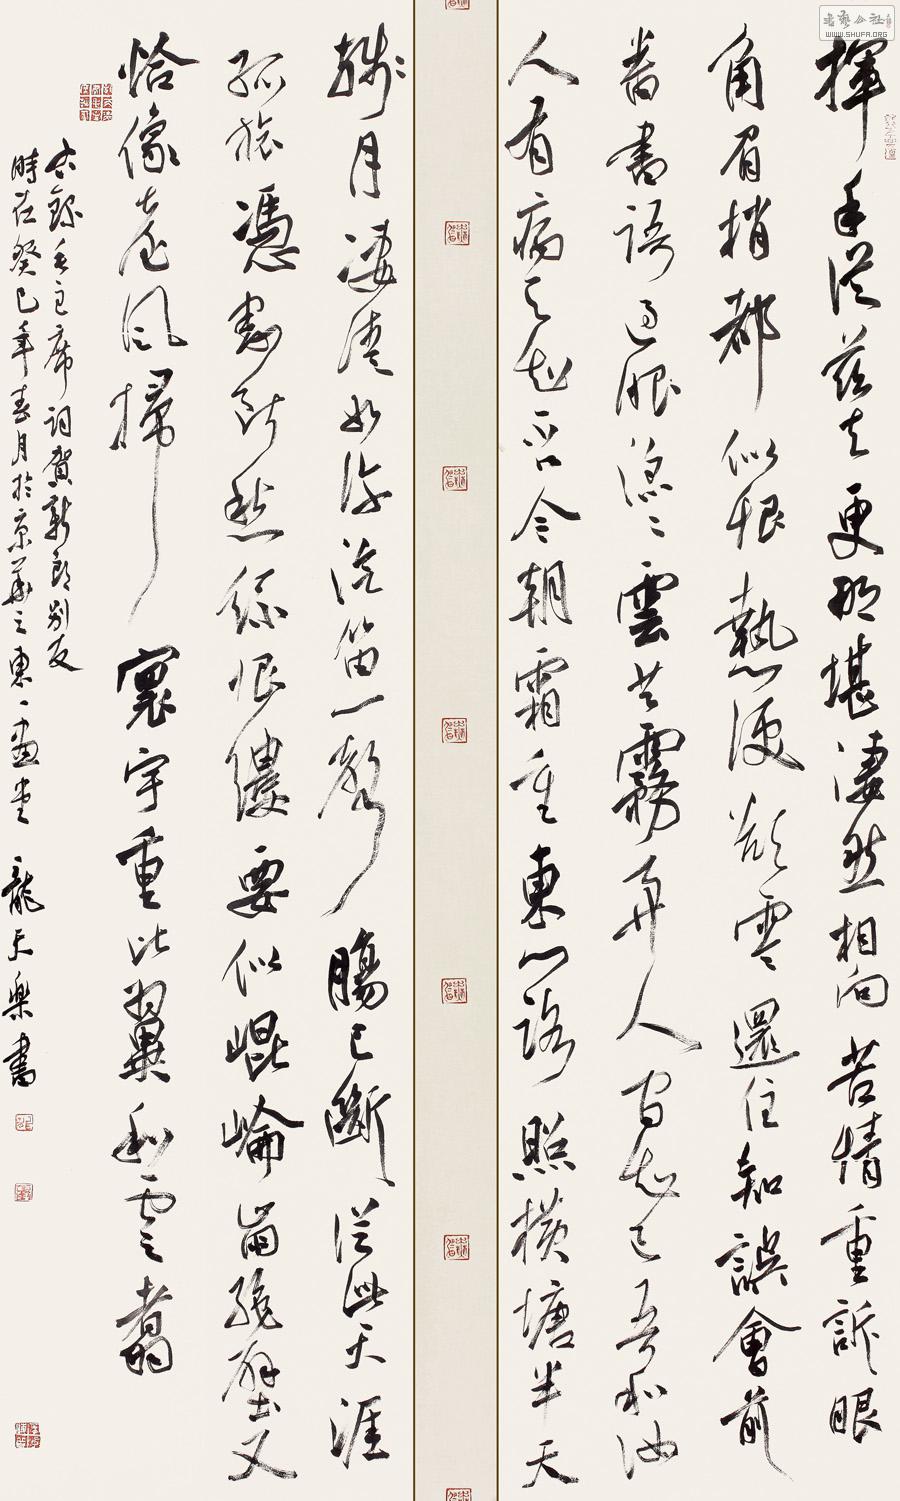 揮手從茲去更那堪淒然相向苦情重訴眼
角眉梢都似恨熱淚欲零還住知誤會前
番書語過眼滔滔雲共霧算人間知己吾和汝
人有病天知否今朝霜重東門路照橫塘半天
殘月淒清如許汽笛一聲腸已斷從此天涯
孤旅憑割斷愁絲恨縷要似崐崘崩絕壁又
恰像臺風掃寰宇重比翼和雲翥
右錄毛主席詞賀新郎別友
時在癸巳年春月於京華之東一畫堂 龍天樂書
書藝公社
WWW.SHUFA.ORG